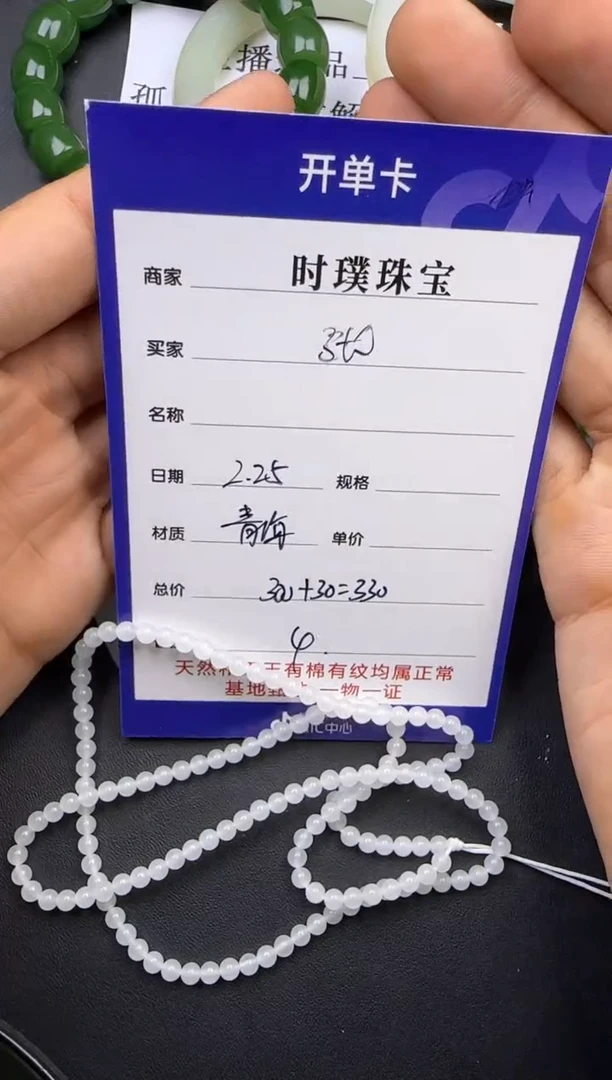 播 品
孤 解
开单卡
商家 时璞珠宝
买家
名称
日期 2.25 规格
材质 青海 单价
总价 300+30=330
4.
天然 有棉有纹均属正常
基地 一物一证
中心